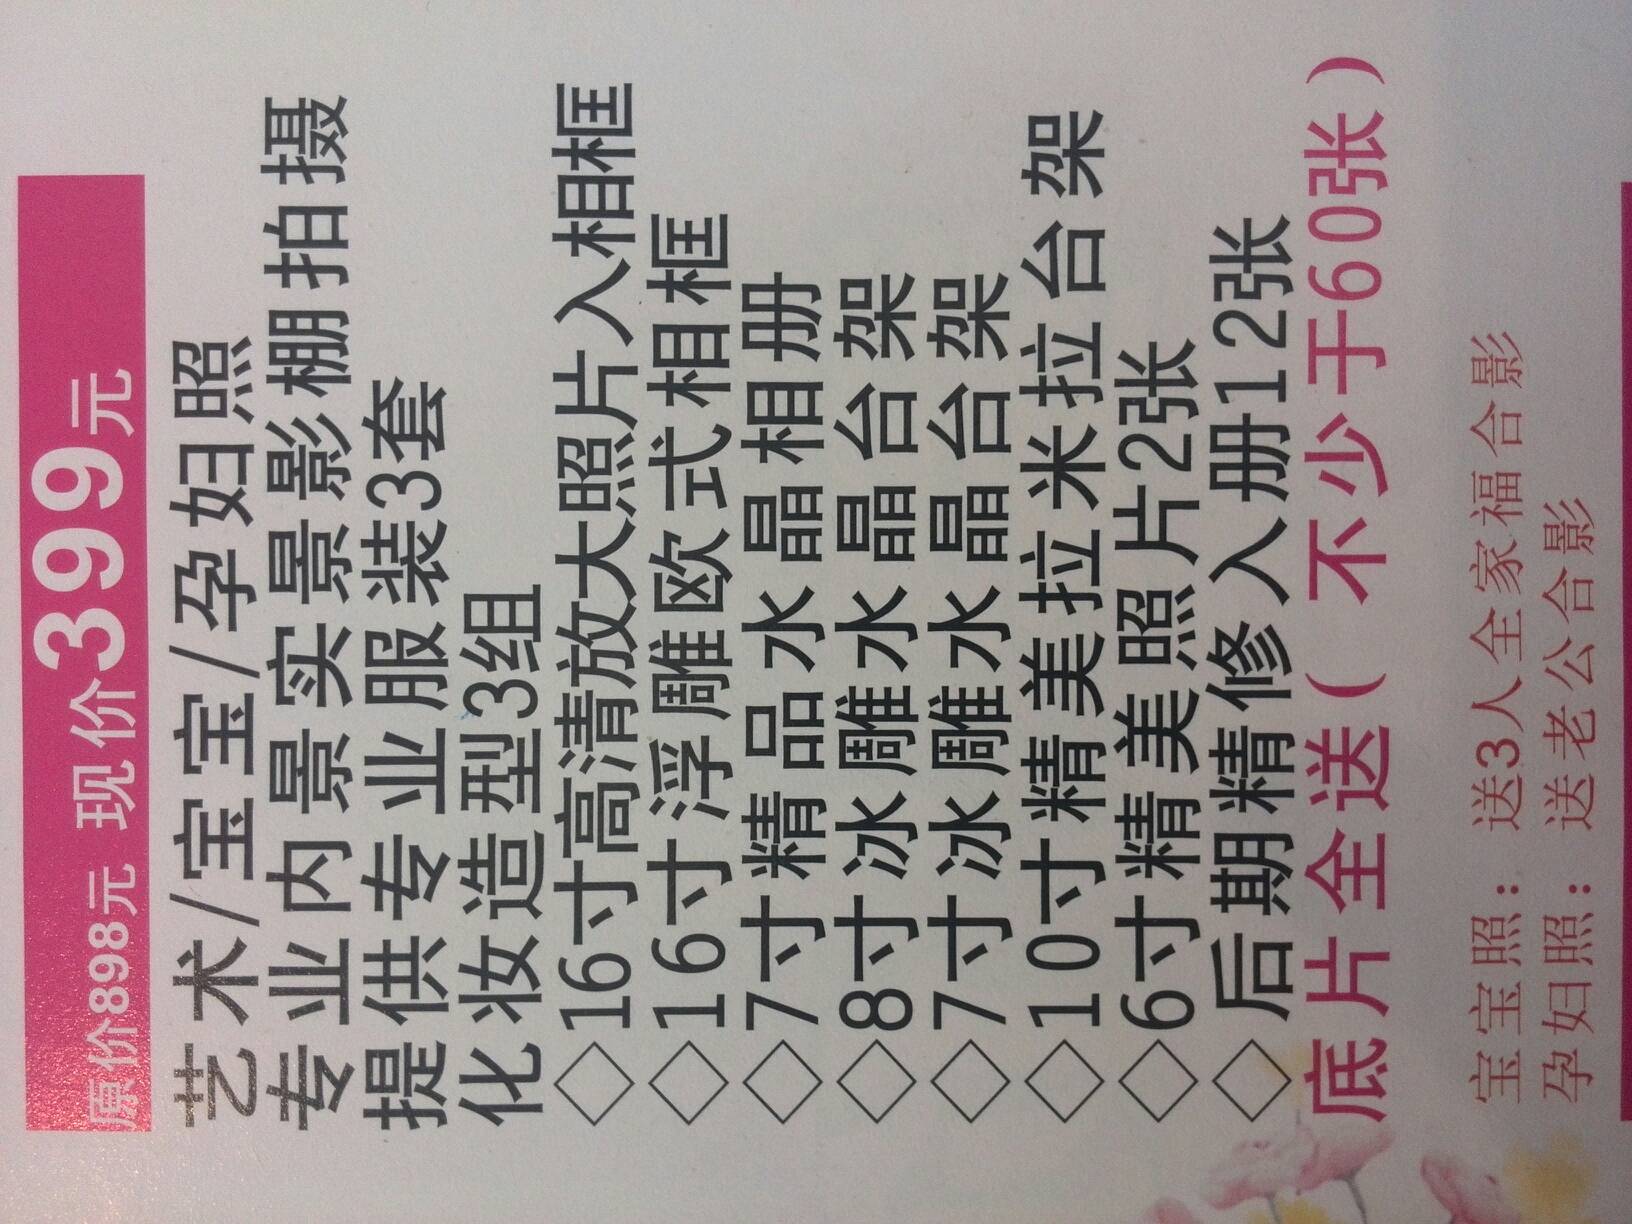 原价898元 现价399元
艺术/宝宝/孕妇照
专业内景实景影棚拍摄
提供专业服装3套
化妆造型3组
◇16寸高清放大照片入相框
◇16寸浮雕欧式相框
◇7寸精品水晶相册
◇8寸冰雕水晶台架
◇7寸冰雕水晶台架
◇10寸精美拉米拉台架
◇6寸精美照片2张
◇后期精修入册12张
底片全送(不少于60张)
宝宝照：送3人全家福合影
孕妇照：送老公合影